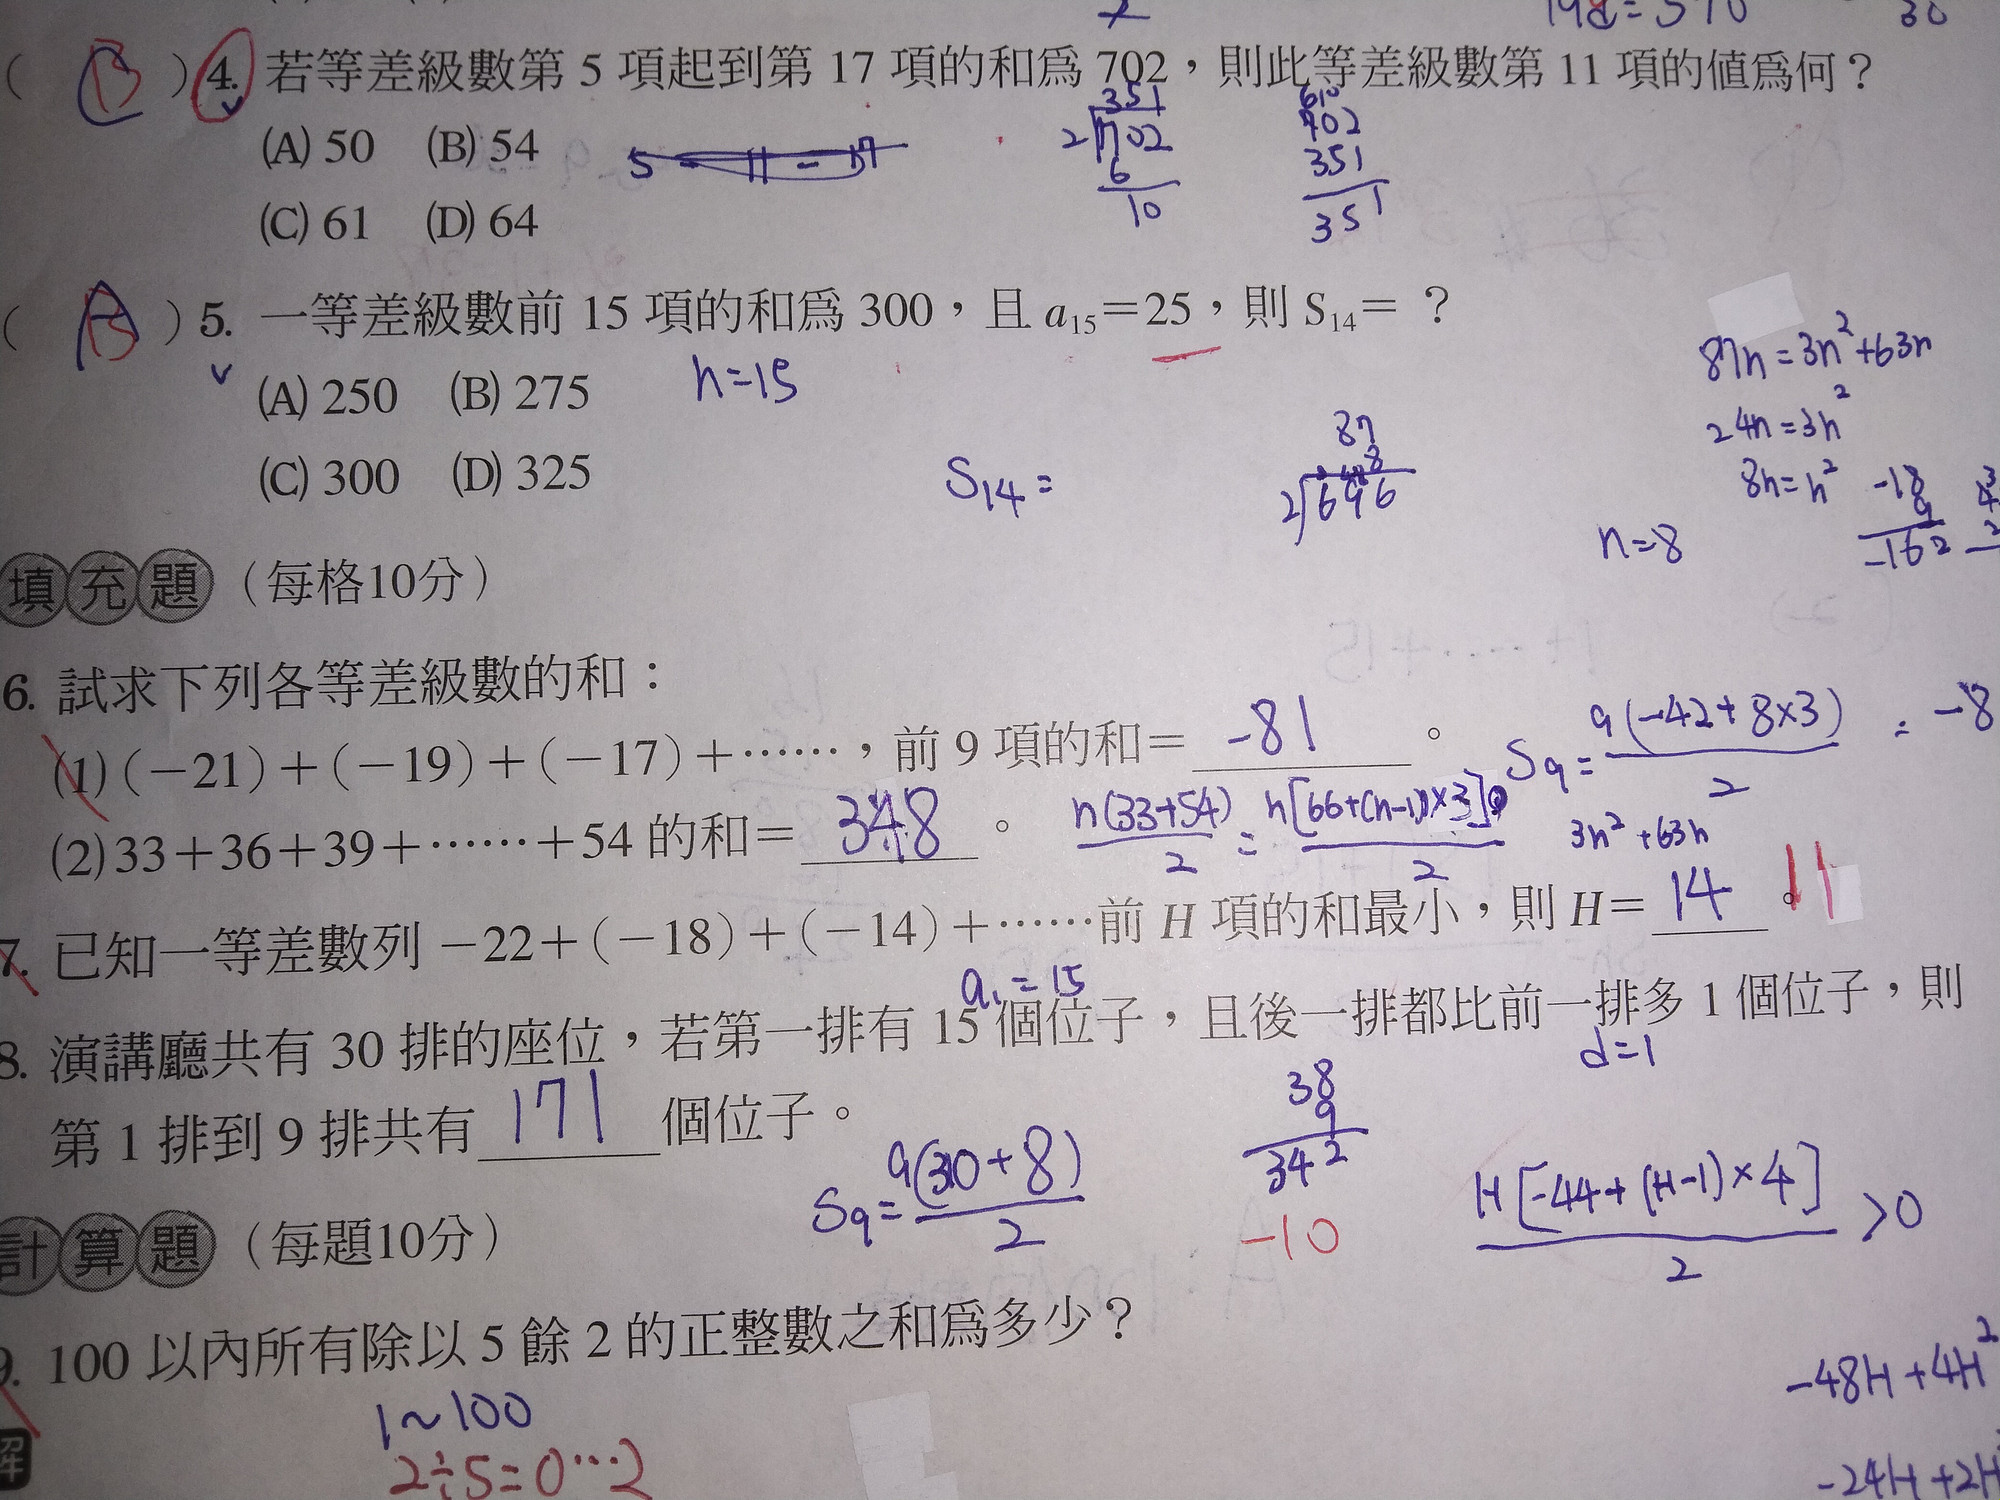 19d=570
30
( B ) 4. 若等差級數第 5 項起到第 17 項的和爲 702，則此等差級數第 11 項的値爲何？
(A) 50 (B) 54
(C) 61 (D) 64
5 - 11 - 17
351
2 702
6
10
702
351
351
( B ) 5. 一等差級數前 15 項的和爲 300，且 a₁₅＝25，則 S₁₄＝？
(A) 250 (B) 275
(C) 300 (D) 325
n=15
S₁₄=
87
8
2 696
87n=3n²+63n
24n=3n²
8n=n²
n=8
-18
9
-162
填充題（每格10分）
6. 試求下列各等差級數的和：
(1)(－21)＋(－19)＋(－17)＋……，前 9 項的和＝ -81 。
S₉= 9(-42+8×3) / 2 = -8
(2)33＋36＋39＋……＋54 的和＝ 348 。
n(33+54) / 2 = n[66+(n-1)×3] / 2
3n²+63n
7. 已知一等差數列 －22＋(－18)＋(－14)＋……前 H 項的和最小，則 H＝ 14 。
a₁=15
8. 演講廳共有 30 排的座位，若第一排有 15 個位子，且後一排都比前一排多 1 個位子，則
d=1
第 1 排到 9 排共有 171 個位子。
S₉= 9(30+8) / 2
38
9
342
-10
H[-44+(H-1)×4] / 2 >0
計算題（每題10分）
9. 100 以內所有除以 5 餘 2 的正整數之和爲多少？
1~100
2÷5=0…2
-48H+4H²
-24H+2H
解